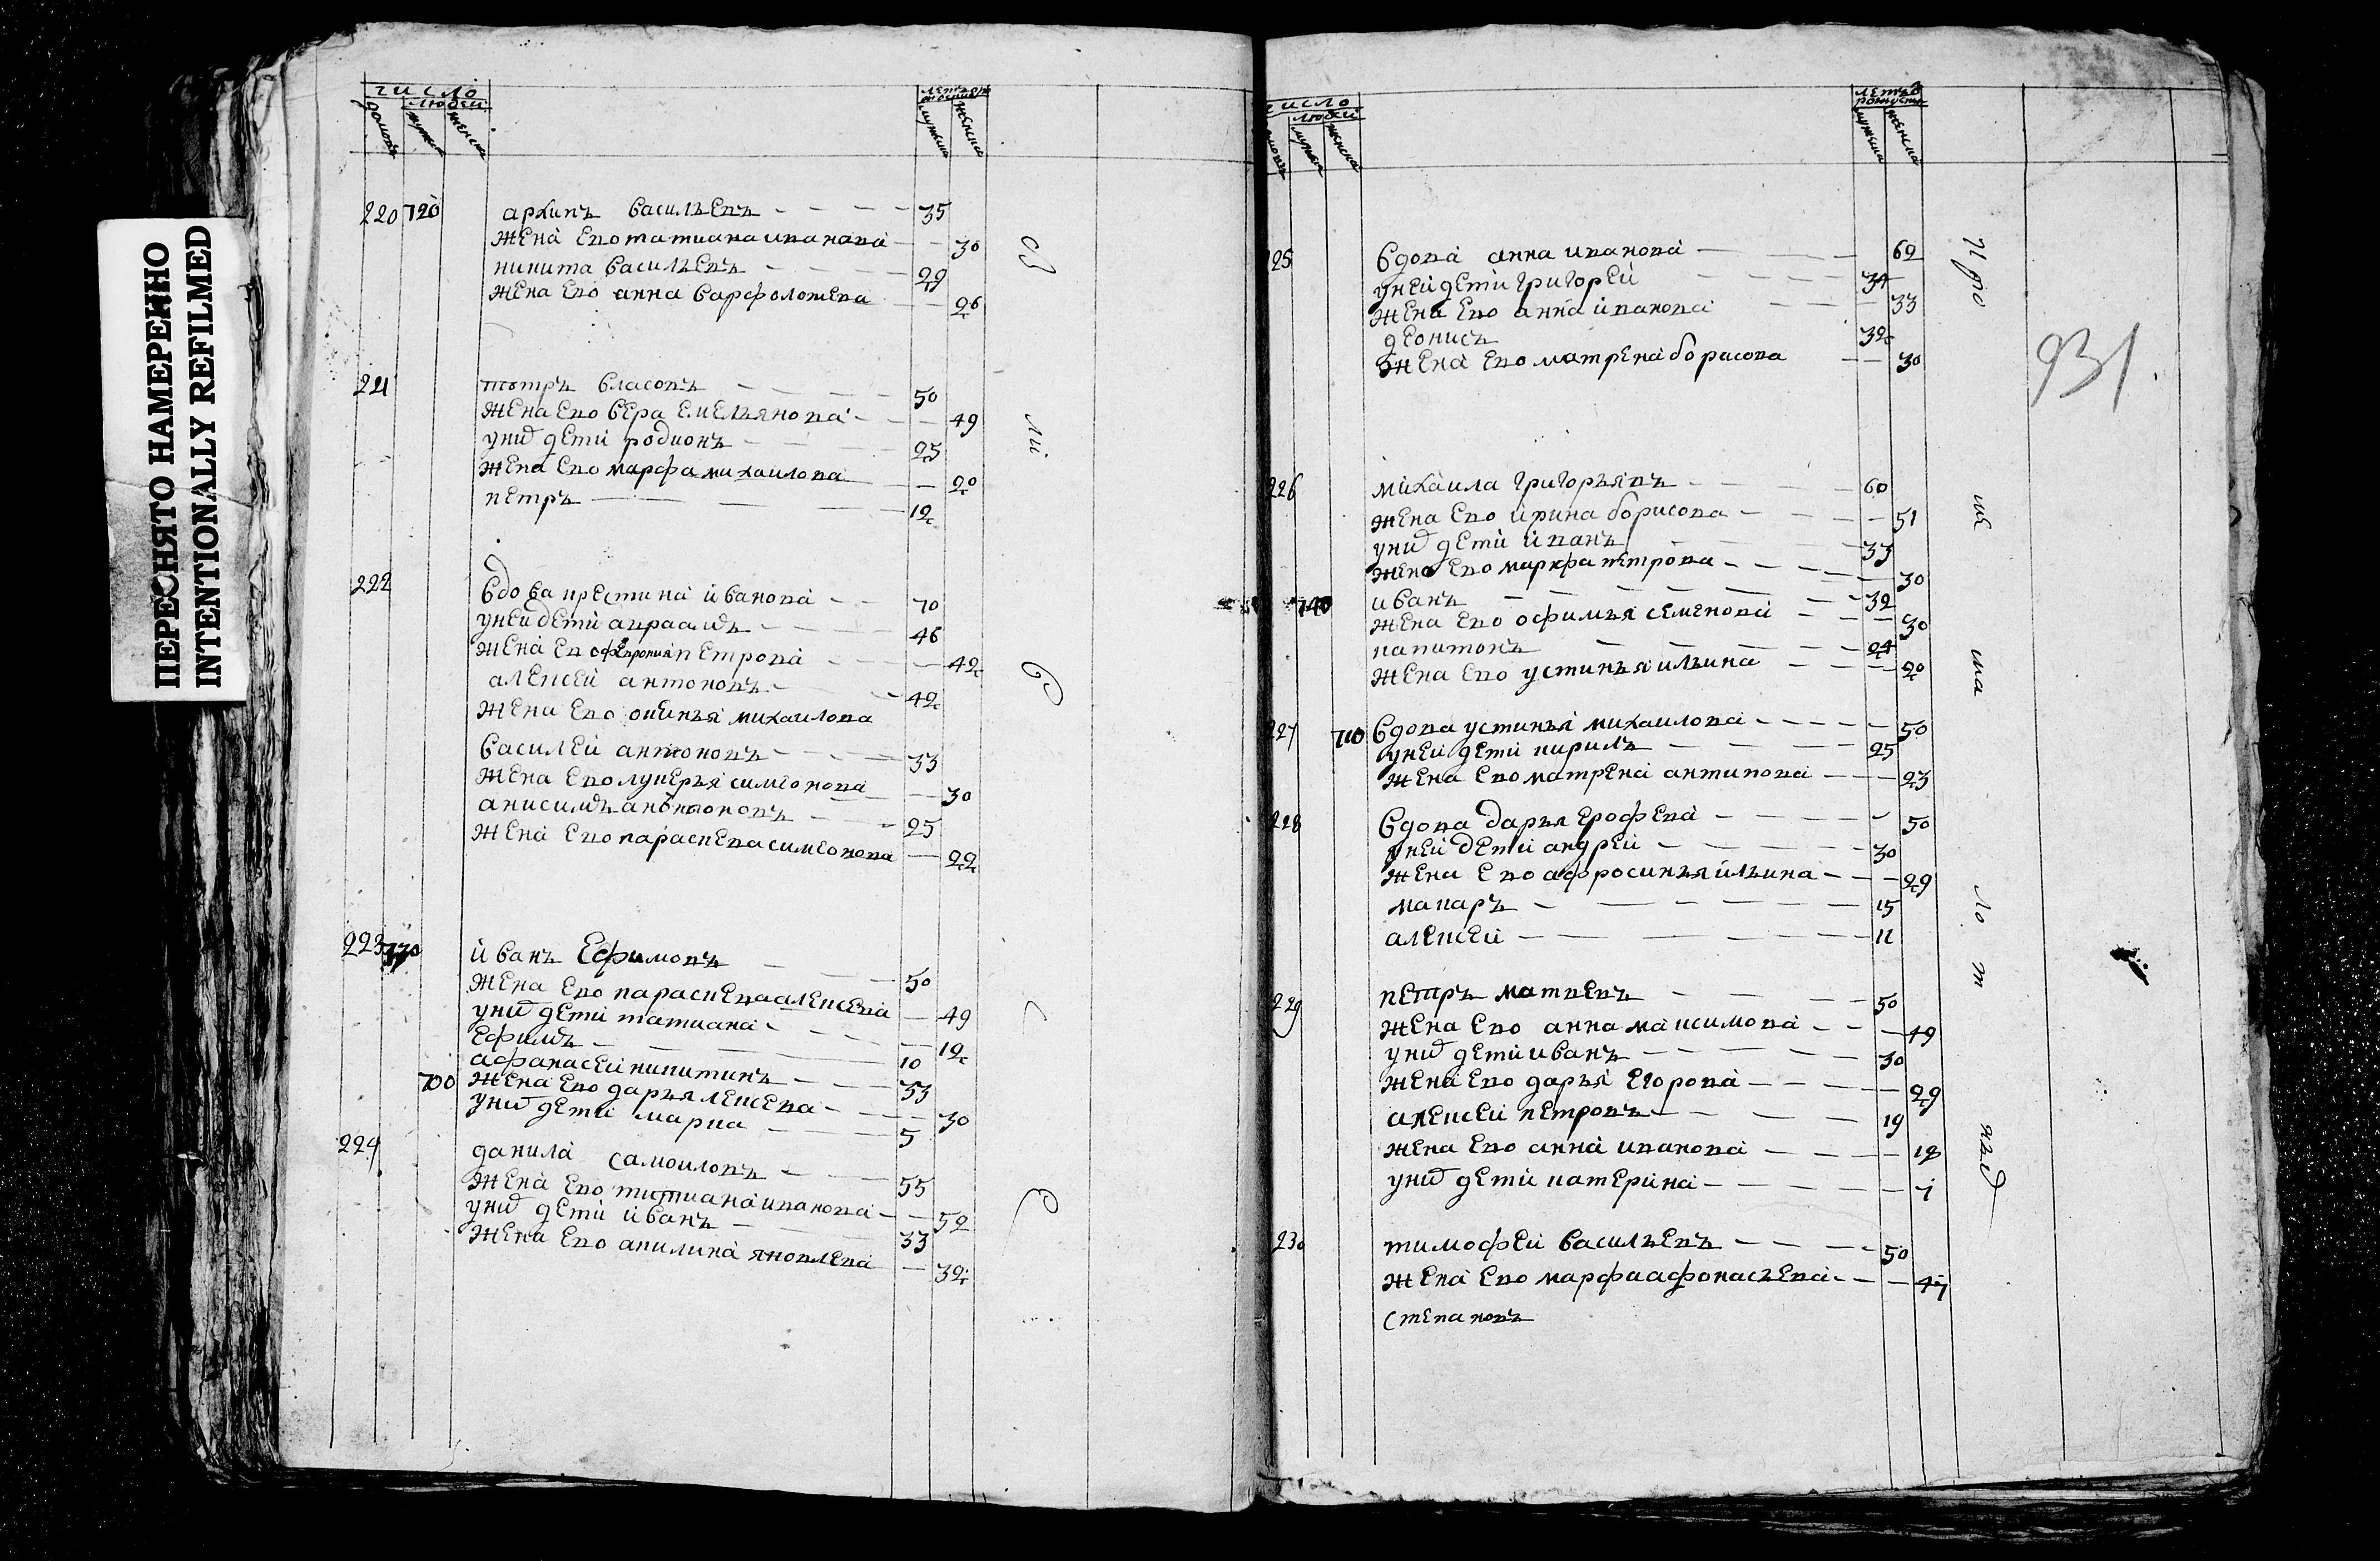 ПЕРЕСНЯТО НАМЕРЕННО
INTENTIONALLY REFILMED
число
людей
домовъ
мужеска
женска
летъ
мужеска
женска
220 720 архипъ василъевъ 35
жена ево татиана иванова 30
никита василъевъ 29
жена ево анна варфоломева 26
221 власовъ 50
жена ево вера емелъянова 49
унихъ дети родионъ 25
жена ево марфа михаилова 20
петръ 12
222 вдова крестина иванова 70
уней дети авраамъ 46
жена ево феврониа петрова 42
алексей антоновъ 42
жена ево михаилова
василей антоновъ 33
жена ево лукеръя симеонова 30
анисимъ антоновъ 25
жена ево параскева симеонова 22
223 730 иванъ ефимовъ 50
жена ево параскева алексева 49
унихъ дети татиана 12
ефимъ 10
афанасеи никитинъ 33
700 жена ево даръя лексева 30
унихъ дети мариа 5
224 данила самоиловъ 55
жена ево татиана иванова 52
унихъ дети иванъ 33
жена ево акилина яковлева 32
св
ли
в
с
е
число
людей
мужеска
женска
летъ
мужеска
женска
931
25 вдова анна иванова 69
уней дети григорей 34
жена ево анна иванова 33
деонисъ 32
жена ево матрена борисова 30
226 михаила григоръявъ 60
жена ево ирина борисова 51
унихъ дети иванъ 33
жена ево марфа петрова 30
740 иванъ 32
жена ево офимъя семенова 30
капитонъ 24
жена ево устинъя илъина 20
227 710 вдова устинъя михаилова 50
уней дети кирилъ 25
жена ево матрена антипова 23
228 вдова даръя ерофева 50
уней дети андрей 30
жена ево афросинъя илъина 29
макаръ 15
алексей 11
229 петръ матвевъ 50
жена ево анна максимова 49
унихъ дети иванъ 30
жена ево даръя егорова 29
алексеи петровъ 19
жена ево анна иванова 18
унихъ дети катерина 1
230 тимофеи василъевъ 50
жена ево марфа афонасъева 47
степановъ
про
ше
ма
ло
т